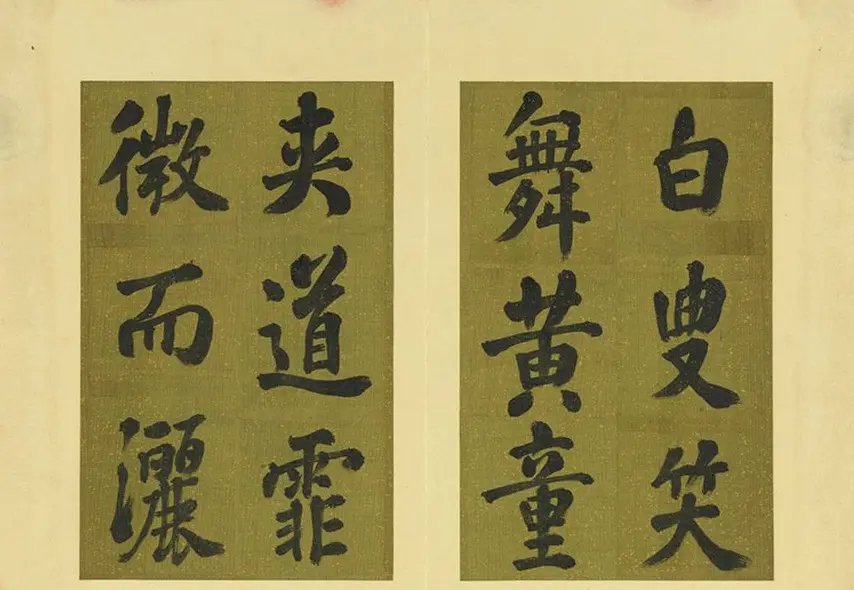 白叟笑
舞黄童
夹道霏
微而灑